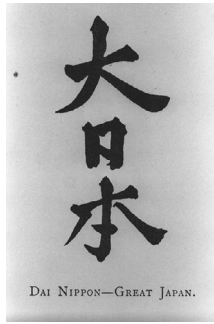 大日本
Dai Nippon—Great Japan.